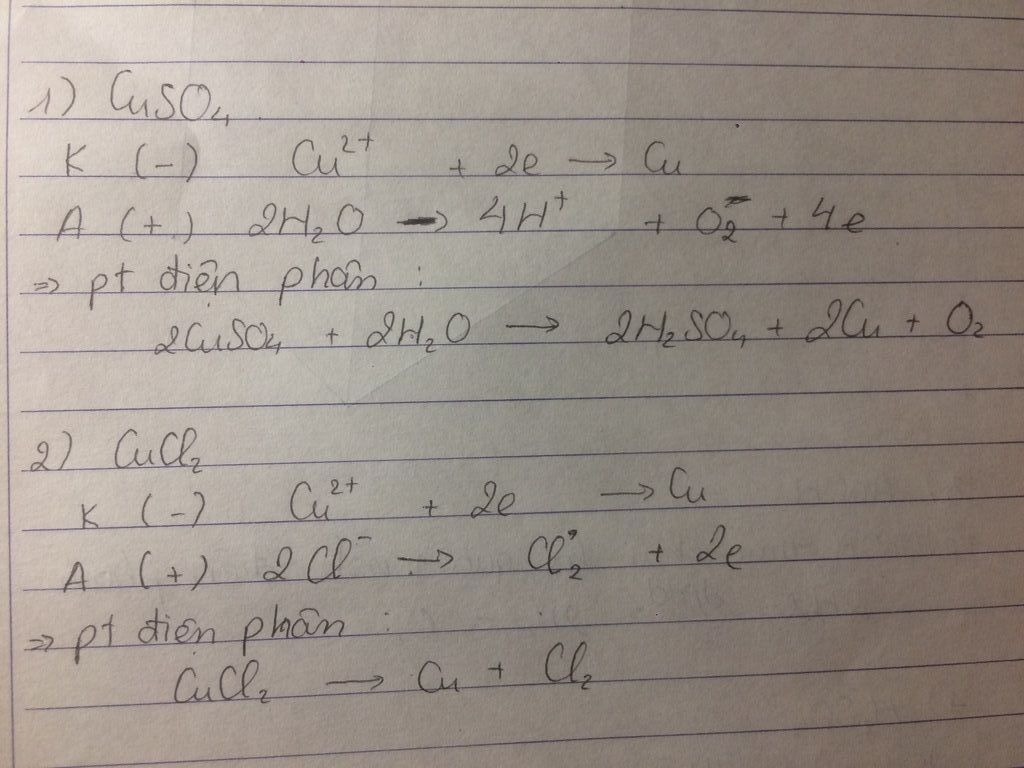 1) CuSO₄
K (-) Cu²⁺ + 2e → Cu
A (+) 2H₂O → 4H⁺ + O₂ + 4e
⇒ pt điện phân :
2CuSO₄ + 2H₂O → 2H₂SO₄ + 2Cu + O₂
2) CuCl₂
K (-) Cu²⁺ + 2e → Cu
A (+) 2Cl⁻ → Cl₂ + 2e
⇒ pt điện phân :
CuCl₂ → Cu + Cl₂